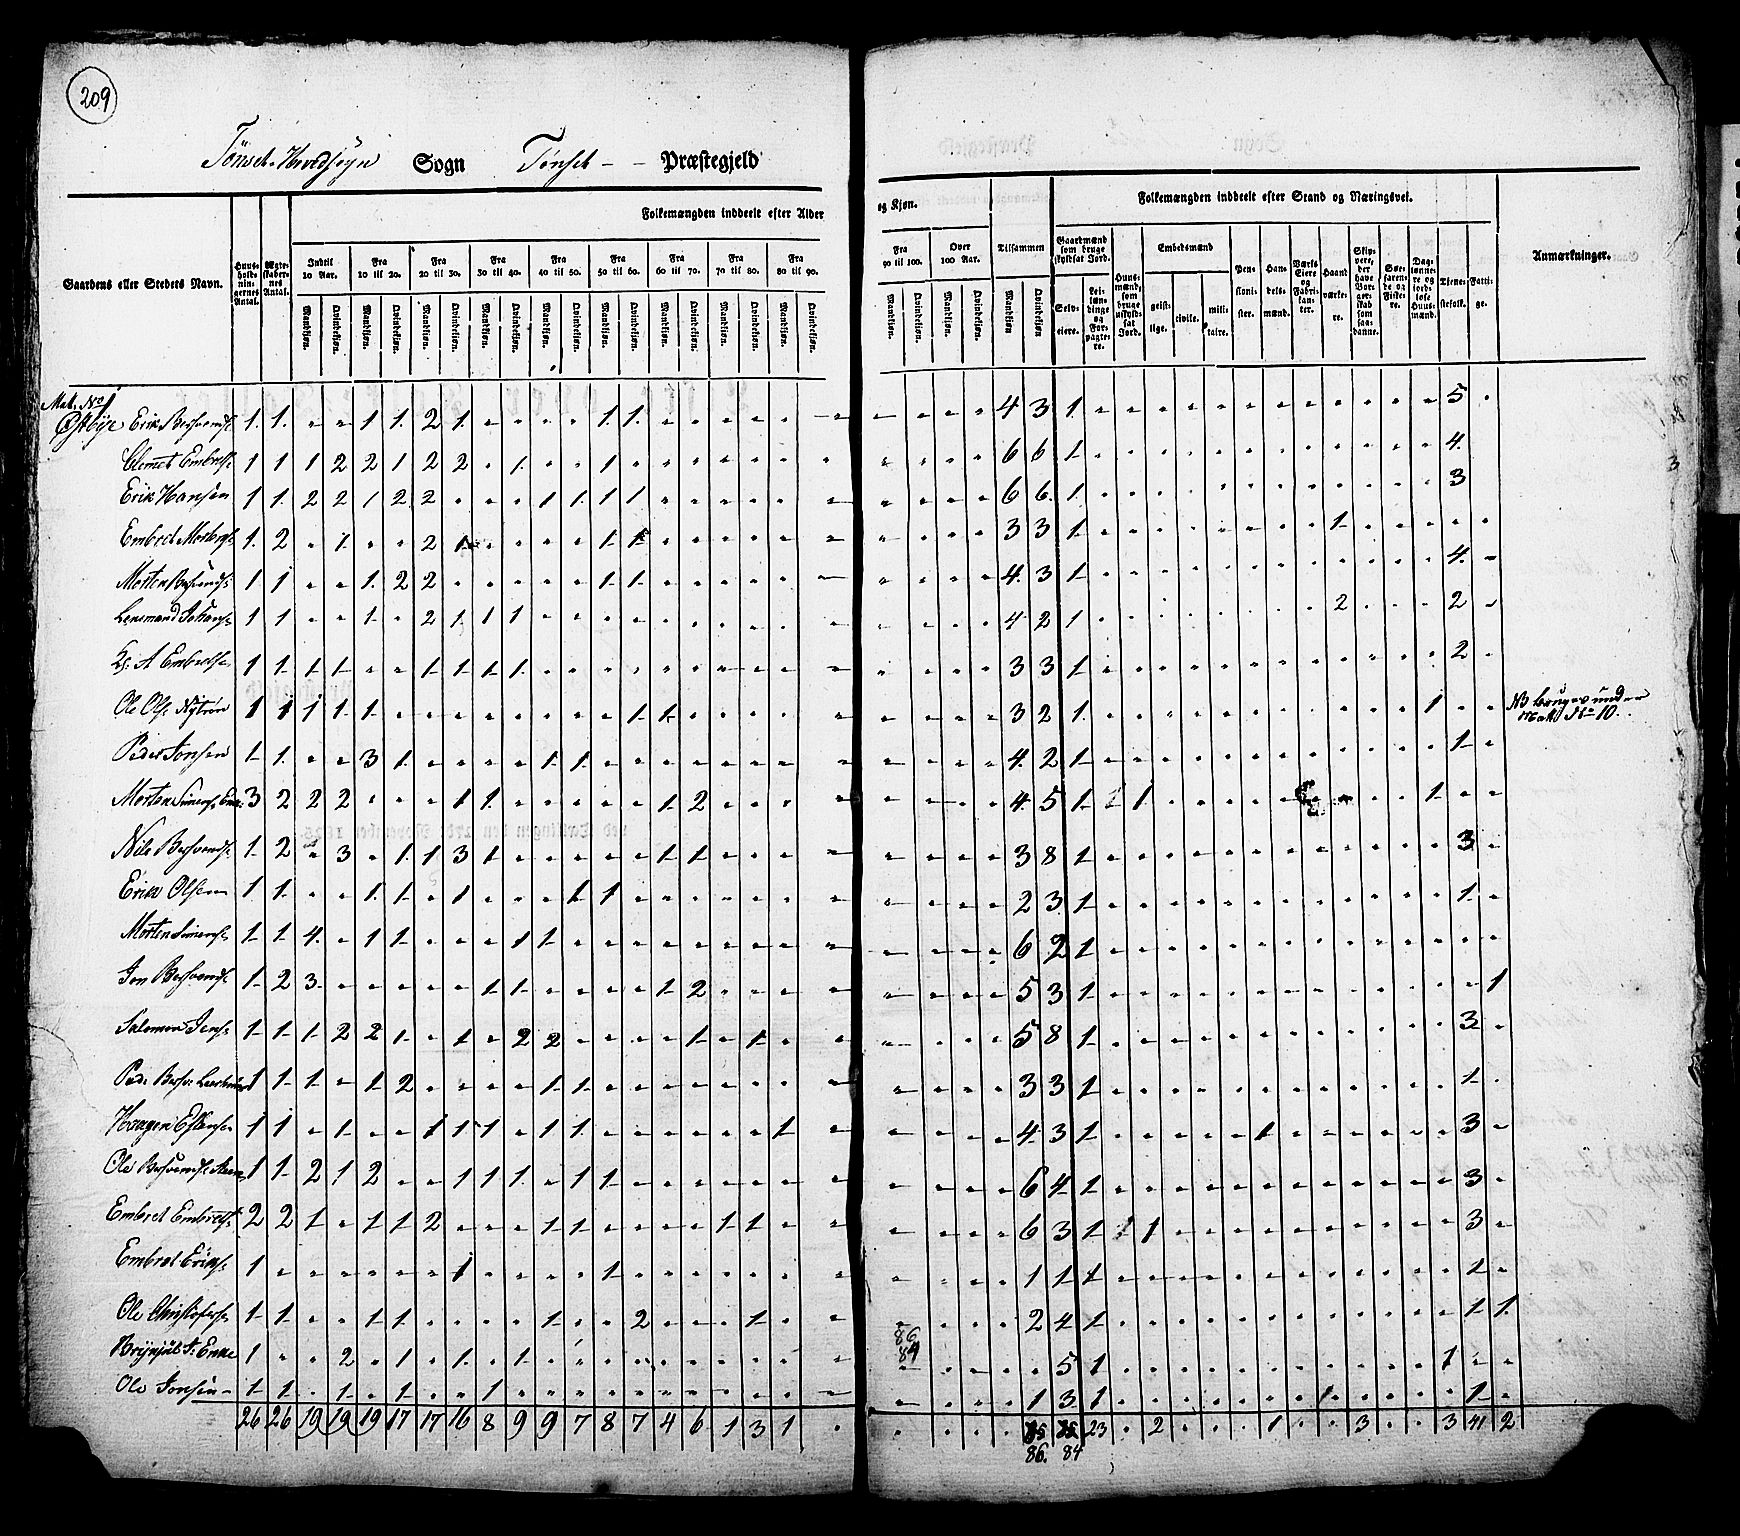 209
Tönset Hovedsogn Sogn Tönset - - Præstegjeld
Folkemængden inddeelt efter Alder og Kjøn.
Tilsammen
Folkemængden inddeelt efter Stand og Næringsvei.
Gaardens eller Stedets Navn.
Huusholdningernes Antal.
Ægteskabernes Antal.
Indtil 10 Aar.
Fra 10 til 20.
Fra 20 til 30.
Fra 30 til 40.
Fra 40 til 50.
Fra 50 til 60.
Fra 60 til 70.
Fra 70 til 80.
Fra 80 til 90.
Fra 90 til 100.
Over 100 Aar.
Mandkiøn. Qvindekiøn.
Gaardmænd som bruge skyldsat Jord.
Selveiere.
Leilændinge og Forpagtere.
Huusmænd, som bruge uskyldsat Jord.
Embedsmænd
geistlige. civile. militaire.
Pensionister.
Handelsmænd.
Værkseiere og Fabrikanter.
Haandværkere.
Skippere, der have Borgerskab som saadanne.
Søefarende og Fiskere.
Daglønnere og jordløse Huusmænd.
Tienestefolk.
Fattige.
Anmærkninger.
Mat. No 1
Østbye Erik 1. 1. 1 1. 2 1. 1. 1. 4 3 1. 5
Clemet 1 1 1 2 2 1 2 2 1. 1 6 6 1 4.
Erik Hansen 1 1. 2 2 1 2 2 1 1. 1 1 6 6. 1 3
Embret 1. 2 1. 2 1. 1 1 3 3 1 1
Morten 1 1 1. 2 2 1 1. 4. 3 1 4.
Lensmand 1 1 1. 2 1. 1 1 4 2 1 2 2
A Embretsen 1 1. 1 1. 1. 1. 1. 1. 3 3 1 2
Ole Ols. Nytrön 1 1 1 1. 1. 1 1. 3 2 1. 1 NB bruges under Matr No 10.
Peder Jonsen 1 1. 3 1. 1 1. 4. 2 1 1
Morten 3 2 2 2 1 1. 1 2 4. 5 1 1 1
Nils 1 2 3 1. 1 3 1 1 1. 3 8 1 3
Erik Olsen 1 1. 1. 1. 1 1 1 2 3 1 1
Morten 1 1 4. 1 1. 1 1. 6 2 1
Jon 1 2 3 1 1. 1 2 5 3 1 1
Salomon Jons. 1 1 1 2 2 1 1 2 2 1 1 5 8 1 3
1 1 1 1 2 1 1 3 3 1 1
Haagen Estensen 1 1 1 1 1 1 1 1. 1 4. 3 1 1 3
Ole 1 1. 2 1 2 1 1 1. 1 1 6 4 1 3
Embret 2 2 1 1 1 2 1 1 1 1 6 3 1 1 3
Embret Eriks. 1 1 1 1 1 1 1
Ole 1 1 1 1 1 2 1 2 4 1 1 1
Enke 1 2 1 1. 1 5 1 1
Ole Jonsen 1 1 1 1 1 1 3 1 1 1
86 84
26 26 19 19 19 17 17 16 8 9 9 7 8 7 4 6 1 3 1 23 2 1 3 3 41 2
86. 84